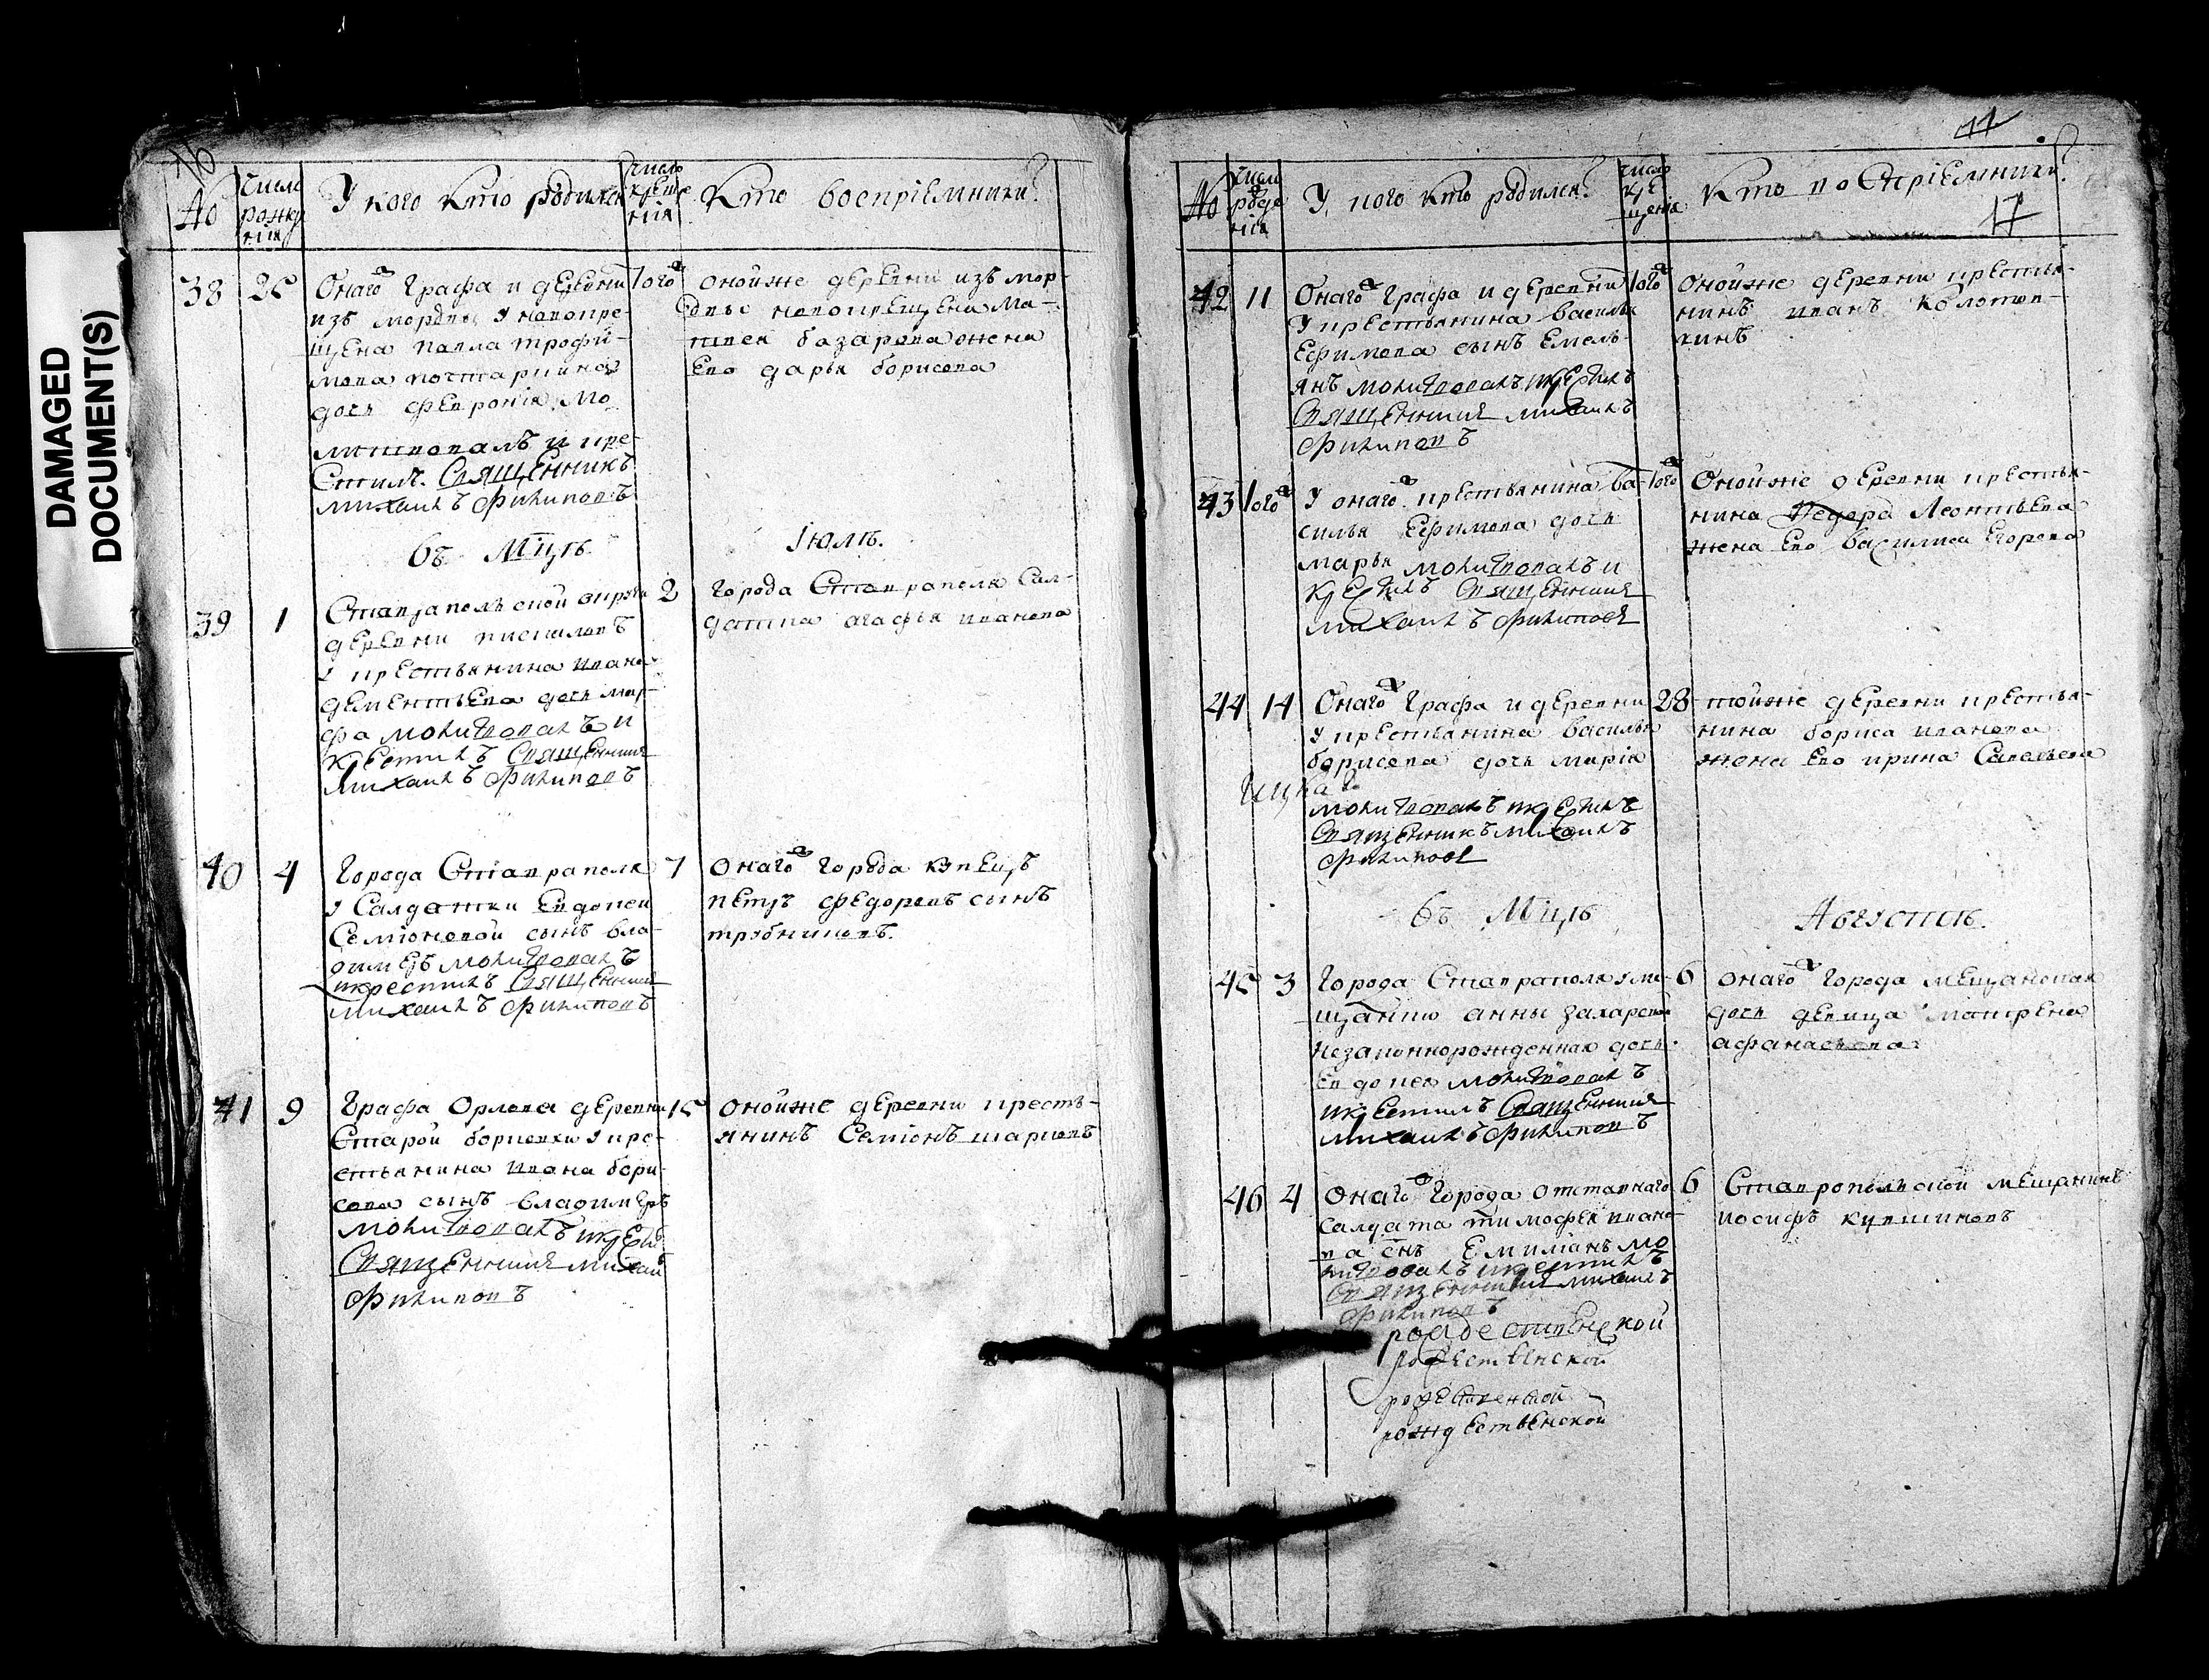 DAMAGED
DOCUMENT(S)
16
№
число
рожде
нія
У кого кто родился
число
креще
нія
Кто воспріемники?
38
25
Онаго графа и деревни
изъ мордвы у новокре-
щена павла трофи-
мова
дочь феврониія. Мо
литвовалъ и кре-
стилъ. Священникъ
михаилъ филиповъ
того
оной же деревни изъ мор-
двы новокрещена Ма-
твея базарова жена
Ево дарья борисова
въ Мцѣ
Іюлѣ.
39
1
Ставрапольской округи
деревни
у крестьянина ивана
дементьева дочь мар-
фа молитвовалъ и
крестилъ Священникъ
михаилъ филиповъ
2
города Ставраполя Сал-
датка агафья иванова
40
4
города Ставраполя
у Салдатки Евдокеи
Семіоновой сынъ вла-
димеръ молитвовалъ
икрестилъ Священникъ
михаилъ филиповъ
7
онаго города купецъ
петръ федоровъ сынъ
трубниковъ.
41
9
Графа Орлова деревни
Старой борковки у кре-
стьянина ивана бори-
сова сынъ владимеръ
молитвовалъ икрестил
Священникъ михаил
филиповъ
15
оной же деревни кресть-
янинъ Семіонъ шарковъ
11
17
№
число
рожде
нія
У кого кто родился?
число
кре
щенія
Кто воспріемники?
42
11
Онаго графа и деревни
У крестьянина василья
Ефимова сынъ Емель-
янъ молитвовалъ икрестилъ
Священникъ михаилъ
филиповъ
того
оной же деревни крестья-
нинъ иванъ колотов-
кинъ
43
того
У онаго крестьянина ва-
силья Ефимова дочь
марья молитвовалъ и
крестилъ Священникъ
михаилъ филиповъ
того
Оной же деревни крестья-
нина Федора Леонтьева
жена Ево василиса Егорова
44
14
Онаго графа и деревни
у крестьянина василья
борисова дочь марія
молитвовалъ икрестилъ
Священникъ михаилъ
филиповъ
28
той же деревни крестья-
нина бориса иванова
жена Ево ирина Савельева
въ Мцѣ
Августѣ.
45
3
города Ставраполя у ме-
щанки анны захаровой
незаконнорожденная дочь
Евдокея молитвовалъ
икрестилъ Священникъ
михаилъ филиповъ
6
онаго города мещанская
дочь девица матрена
афанасьева
46
4
онаго города отставнаго
салдата тимофея ивано-
ва снъ Емиліанъ мо
литвовалъ икрестилъ
Священникъ михаилъ
филиповъ
рождественской
рождественской
рождественской
рождественской
6
Ставропольской мещанинъ
иосифъ кувшиновъ